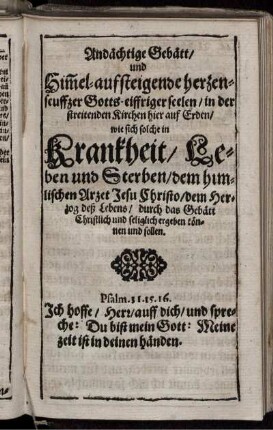 Andächtige Gebätt/
und
Him̃el-aufsteigende herzen-
seuffzer Gotts-eiffriger seelen/ in der
streitenden Kirchen hier auf Erden/
wie sich solche in
Krankheit/ Le-
ben und Sterben/ dem him-
lischen Arzet Jesu Christo/ dem Her-
zog deß Lebens/ durch das Gebätt
Christlich und seliglich ergeben kön-
nen und sollen.
Psalm. 31. 15. 16.
Ich hoffe/ Herr/ auff dich/ und spre-
che: Du bist mein Gott: Meine
zeit ist in deinen händen.